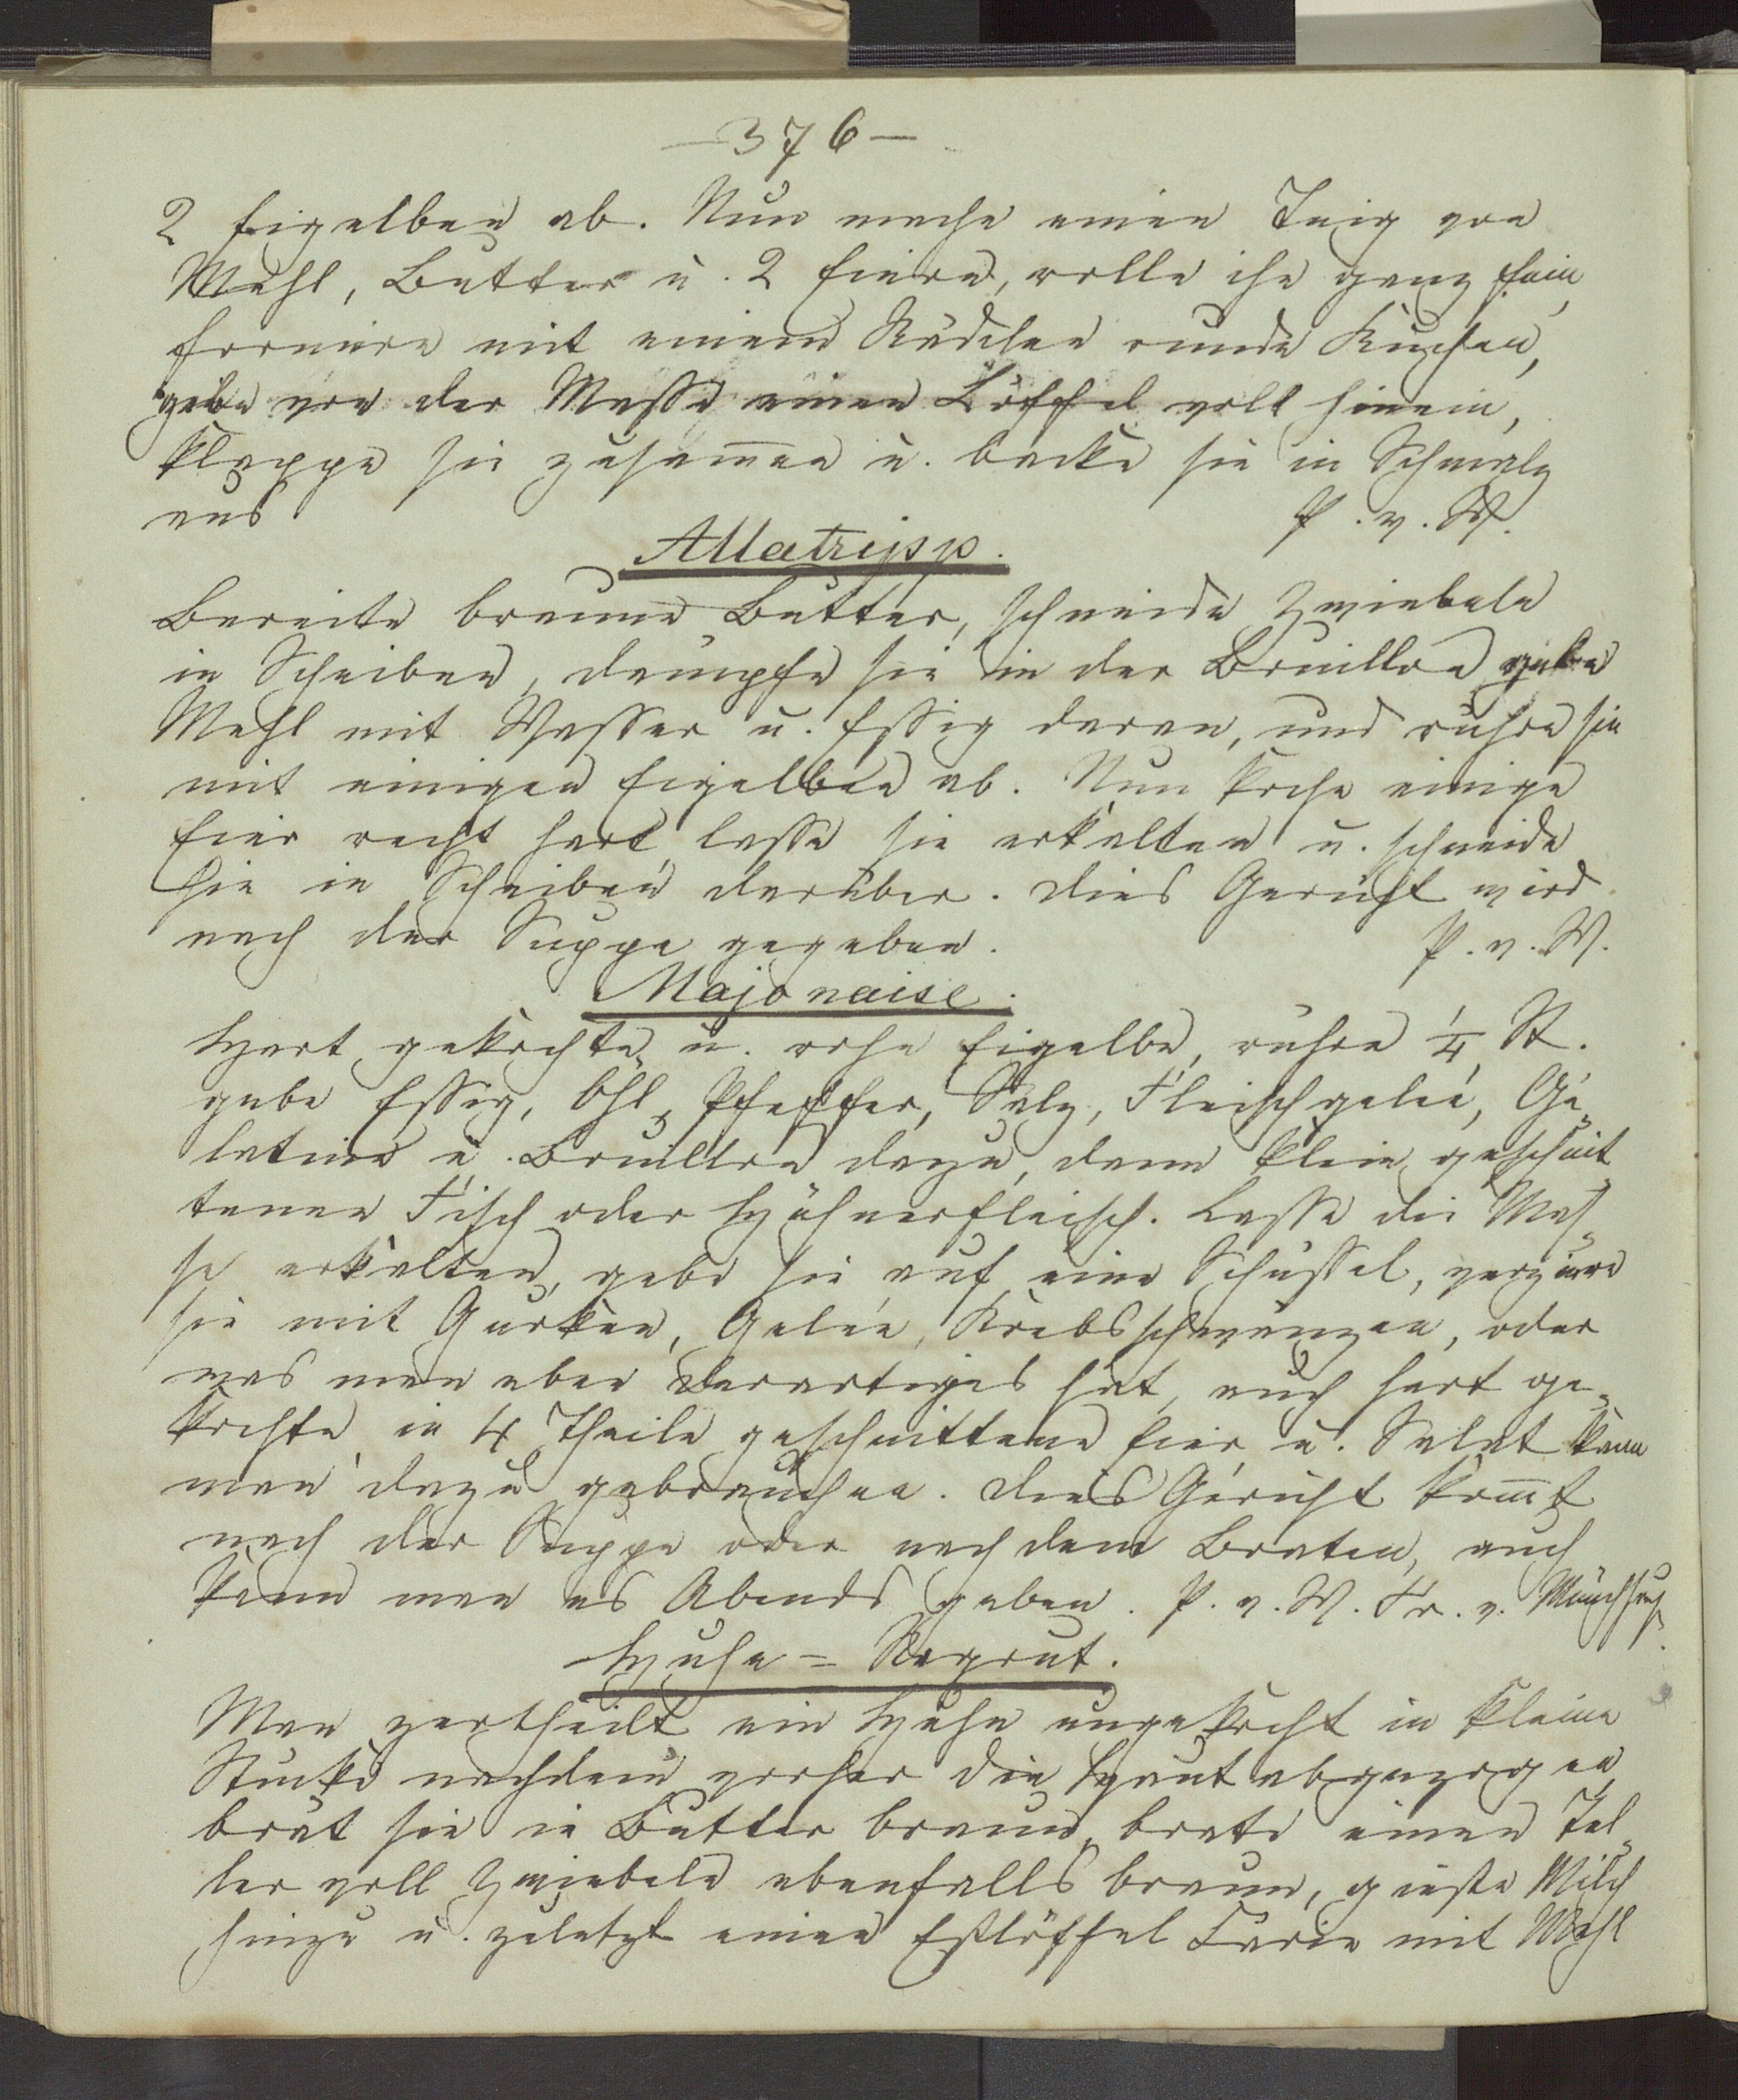 —376—
2 Eigelben ab. Nun mache einen Teig von
Mehl, Butter u. 2 Eiern, rolle ihn ganz fein,
formire mit einem Rädchen runde Kuchen,
gebe von der Masse einen Löffel voll hinein,
klappe sie zusam̅en u. backe sie in Schmalz
aus P. v. W.
Allatripp.
Bereite braune Butter, schneide Zwiebeln
in Scheiben, dämpfe sie in der Bouillon gebe
Mehl mit Wasser u. Essig daran, und rühre sie
mit einigen Eigelben ab. Nun koche einige
Eier recht hart, lasse sie erkalten u. schneide
sie in Scheiben darüber. Dies Gericht wird
nach der Suppe gegeben. P. v. W.
Majonaise.
Hart gekochte u. rohe Eigelbe, rühre 1/4 St.
gebe Essig, Öhl, Pfeffer, Salz, Fleischgelée, Ge-
latine u. Bouillon dazu, dann klein geschnit
tenen Fisch oder Hühnerfleisch. Lasse die Mas-
se erkalten, gebe sie auf eine Schüssel, verziere
sie mit Gurken, Gelée, Krebsschwänzen, oder
was man eben derartiges hat, auch hart ge-
kochte in 4 Theile geschnittene Eier u. Salat kann
man dazu gebrauchen. Dies Gericht kom̅t
nach der Suppe oder nach dem Braten, auch
kann man es Abends geben. P. v. W. Fr. v. Münchhaus.
Huhn=Ragout.
Man zertheilt ein Huhn ungekocht in kleine
Stücke nachdem vorher die Haut abgezogen,
brät sie in Butter braun, brate einen Tel-
ler voll Zwiebeln ebenfalls braun, gieße Milch
hinzu u. zuletzt einen Eßlöffel Currie mit Mehl